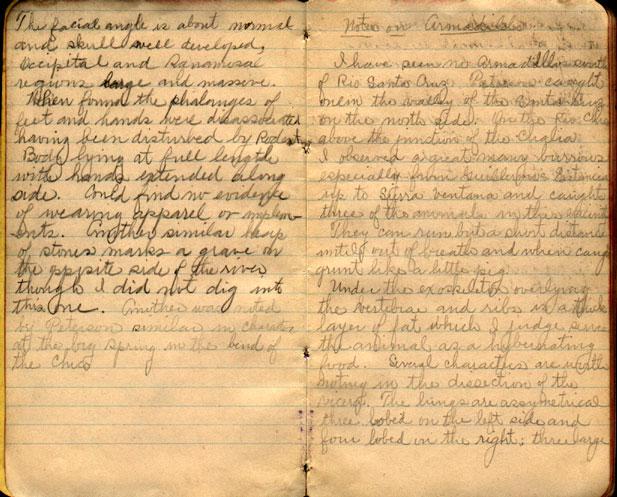 The facial angle is about normal
and skull well developed,
Occipital and
regions large and massive.
When found the phalanges of
feet and hands were disassociated
having been disturbed by Rodents
Body lying at full length
with hands extended along
side. Could find no evidence
of wearing apparel or implem-
ents. Another similar heap
of stones marks a grave on
the opposite side of the river
though I did not dig into
this one. Another was noted
by Peterson similar in character
at the big spring in the bend of
the Chico
Notes on Armadillo.
I have seen no Armadillos south
of Rio Santa Cruz. Peterson caught
one in the valley of the Santa Cruz
on the north side. On the Rio Chico
above the junction of the
I observed a great many burrows
especially from Estancia
up to Sierra Ventana and caught
three of the animals in this
They can run but a short distance
until out of breath and when caught
grunt like a little pig.
Under the exoskeleton overlying
the vertebrae and ribs is a thick
layer of fat which I judge serves
the animal as a hybernating
food. Several characters are worth
noting in the dissection of the
The lungs are assymetrical
three lobed on the left side and
four lobed on the right; three large